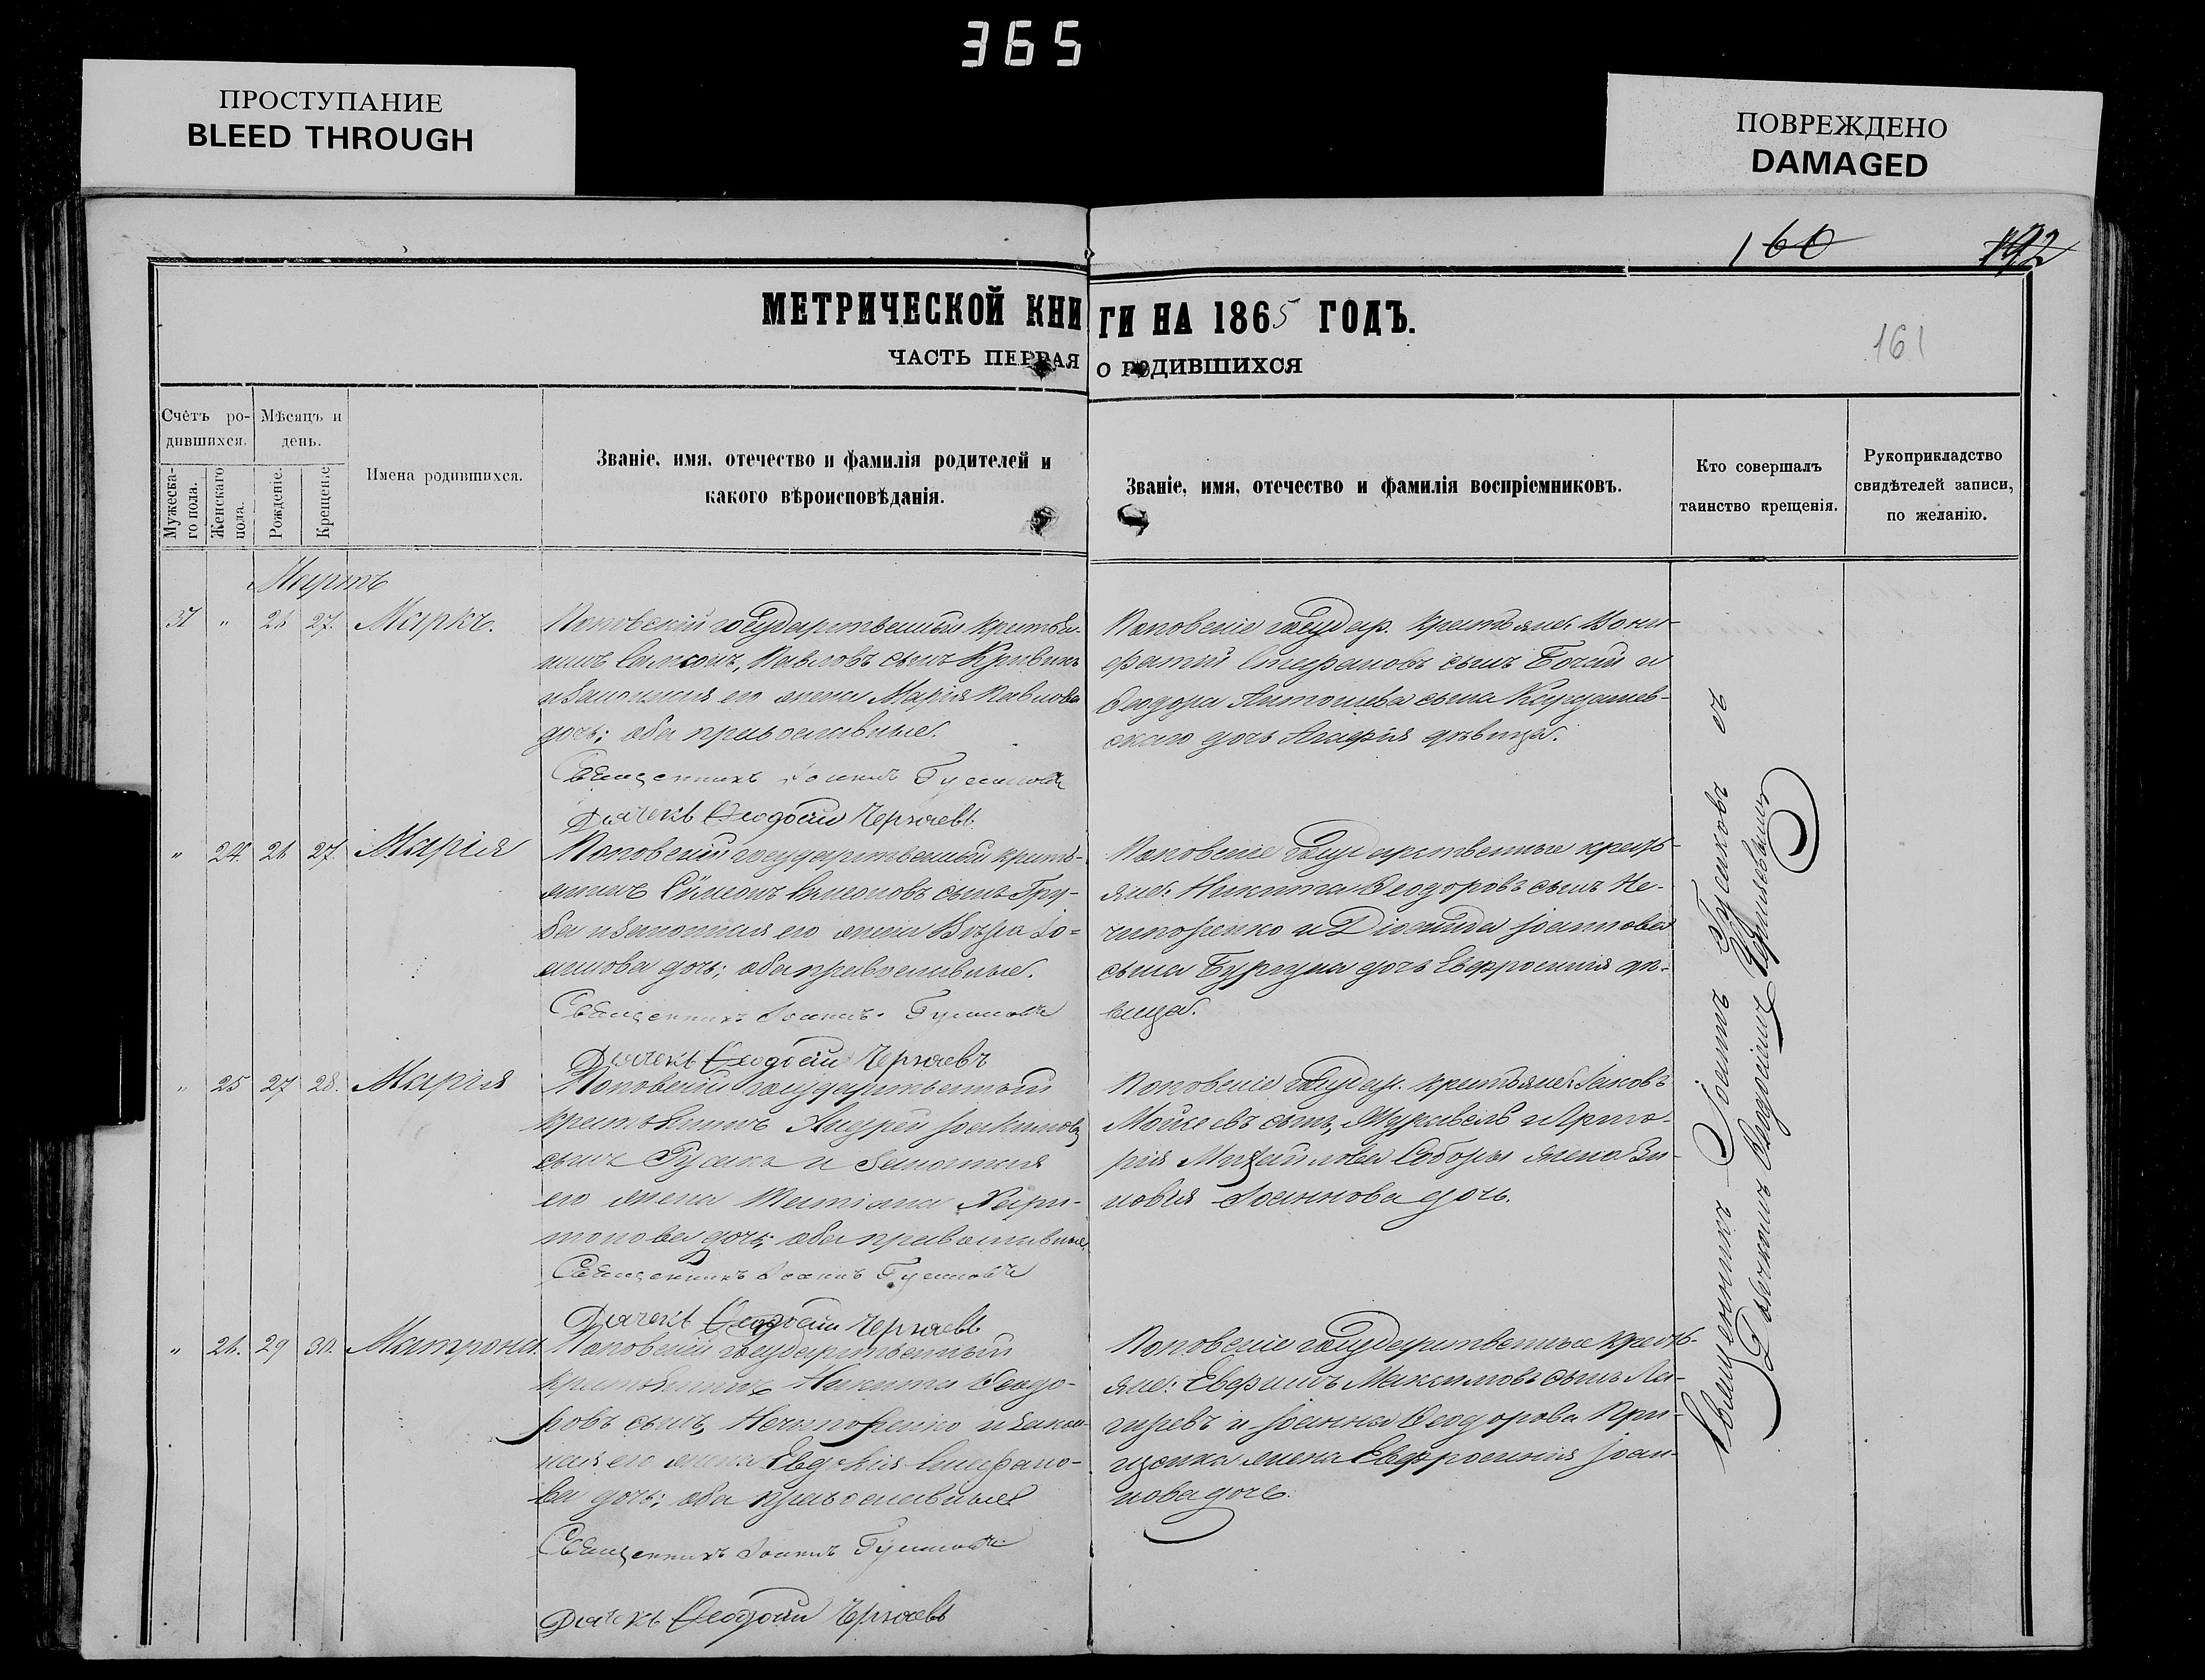 365
ПРОСТУПАНИЕ
BLEED THROUGH
ПОВРЕЖДЕНО
DAMAGED
160
192
161
МЕТРИЧЕСКОЙ КНИГИ НА 1865 ГОДЪ.
ЧАСТЬ ПЕРВАЯ О РОДИВШИХСЯ
Счётъ ро-
дившихся.
Мѣсяцъ и
день.
Мужеска-
го пола.
Женскаго
пола.
Рожденіе.
Крещеніе
Имена родившихся.
Званіе, имя, отечество и фамилія родителей и
какого вѣроисповѣданія.
Званіе, имя, отечество и фамилія воспріемниковъ.
Кто совершалъ
таинство крещенія.
Рукоприкладство
свидѣтелей записи,
по желанію.
Мартъ
31 " 26 27. Маркъ.
Поповскій государственный крестья-
нинъ Самсонъ, Павловъ сынъ
и законная его жена Марія Павлова
дочь; оба православные.
Священникъ Іоаннъ
Дьячекъ Ѳеодосій Чернявъ
Поповскіе государ. крестьяне: Вони-
фатій Стефановъ сынъ и
Ѳеодора Антоньева сына
скаго дочь Агафія дѣвица.
" 24. 26 27. Марія
Поповскій государственный кресть-
янинъ Симеонъ Симеоновъ сынъ Гру-
ба и законная его жена Вѣра Іо-
аннова дочь; оба православные.
Священникъ Іоаннъ
Дьячекъ Ѳеодосій Чернявъ
Поповскіе государственные кресть-
яне: Никита Ѳеодоровъ сынъ Не-
чипоренко и Діомида Іоаннова
сына дочь Евфросинія дѣ-
вица.
" 25 27 28. Марія
Поповскій государственный
крестьянинъ Андрей Іоакимовъ
сынъ и законная
его жена Татіана Хари-
тонова дочь; оба православные.
Священникъ Іоаннъ
Дьячекъ Ѳеодосій Чернявъ
Поповскіе государ. крестьяне: Іаковъ
Мойсеевъ сынъ, Журавель и Григо-
рія Михайлова Соборы жена Зи-
новія Іоаннова дочь.
" 26. 29 30. Матрона.
Поповскій государственный
крестьянинъ Никита Ѳеодо-
ровъ сынъ, Нечипоренко и закон-
ная его жена Евдокія Стефано-
ва дочь; оба православные
Священникъ Іоаннъ
Дьячекъ Ѳеодосій Чернявъ
Поповскіе государственные кресть-
яне: Максимовъ сынъ
и Іоанна Ѳеодорова
жена Евфросинія Іоан-
нова дочь.
Священникъ Іоаннъ съ
Дьячкомъ Ѳеодосіемъ